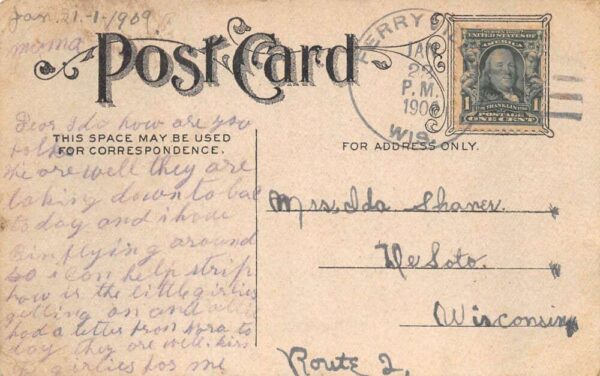 Jan. 21-1-1909
moma
Post Card
FERRY
JAN
2
P.M.
190
WIS.
UNITED STATES OF
AMERICA
FRANKLIN
1 POSTAGE 1
ONE CENT
THIS SPACE MAY BE USED
FOR CORRESPONDENCE.
FOR ADDRESS ONLY.
Dear Ida how are you
we are well they are
taking down to bac
to day and i have
flying around
so i can help strip
how is the little girlies
getting on and all
had a letter from to
day they are well. kiss
girlies for me
Mrs. Ida Shaner.
De Soto.
Wisconsin
Route 2,